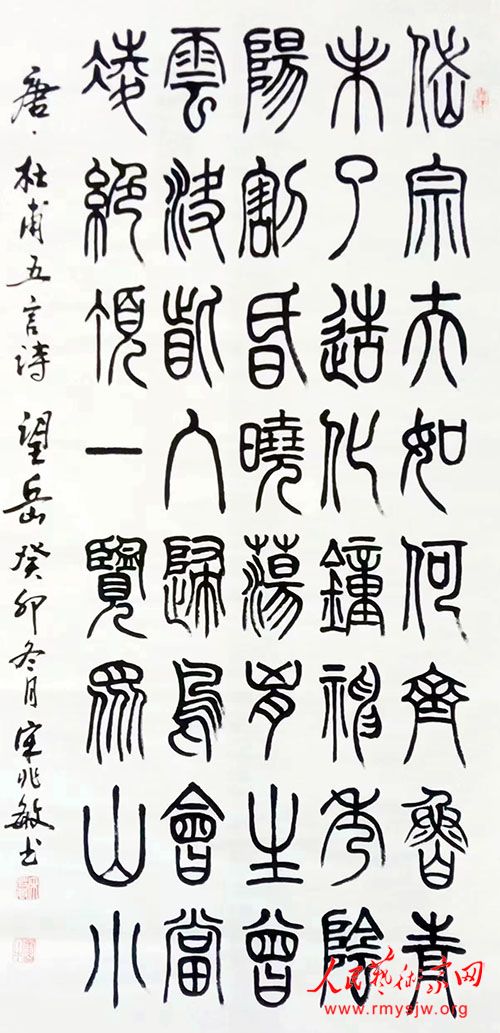 岱宗夫如何齊魯青
未了造化鐘神秀陰
陽割昏曉蕩胸生曾
雲決眥入歸鳥會當
凌絕頂一覽眾山小
唐·杜甫五言詩 望岳 癸卯冬月宋兆敏书
人民藝術家网
www.rmysjw.org